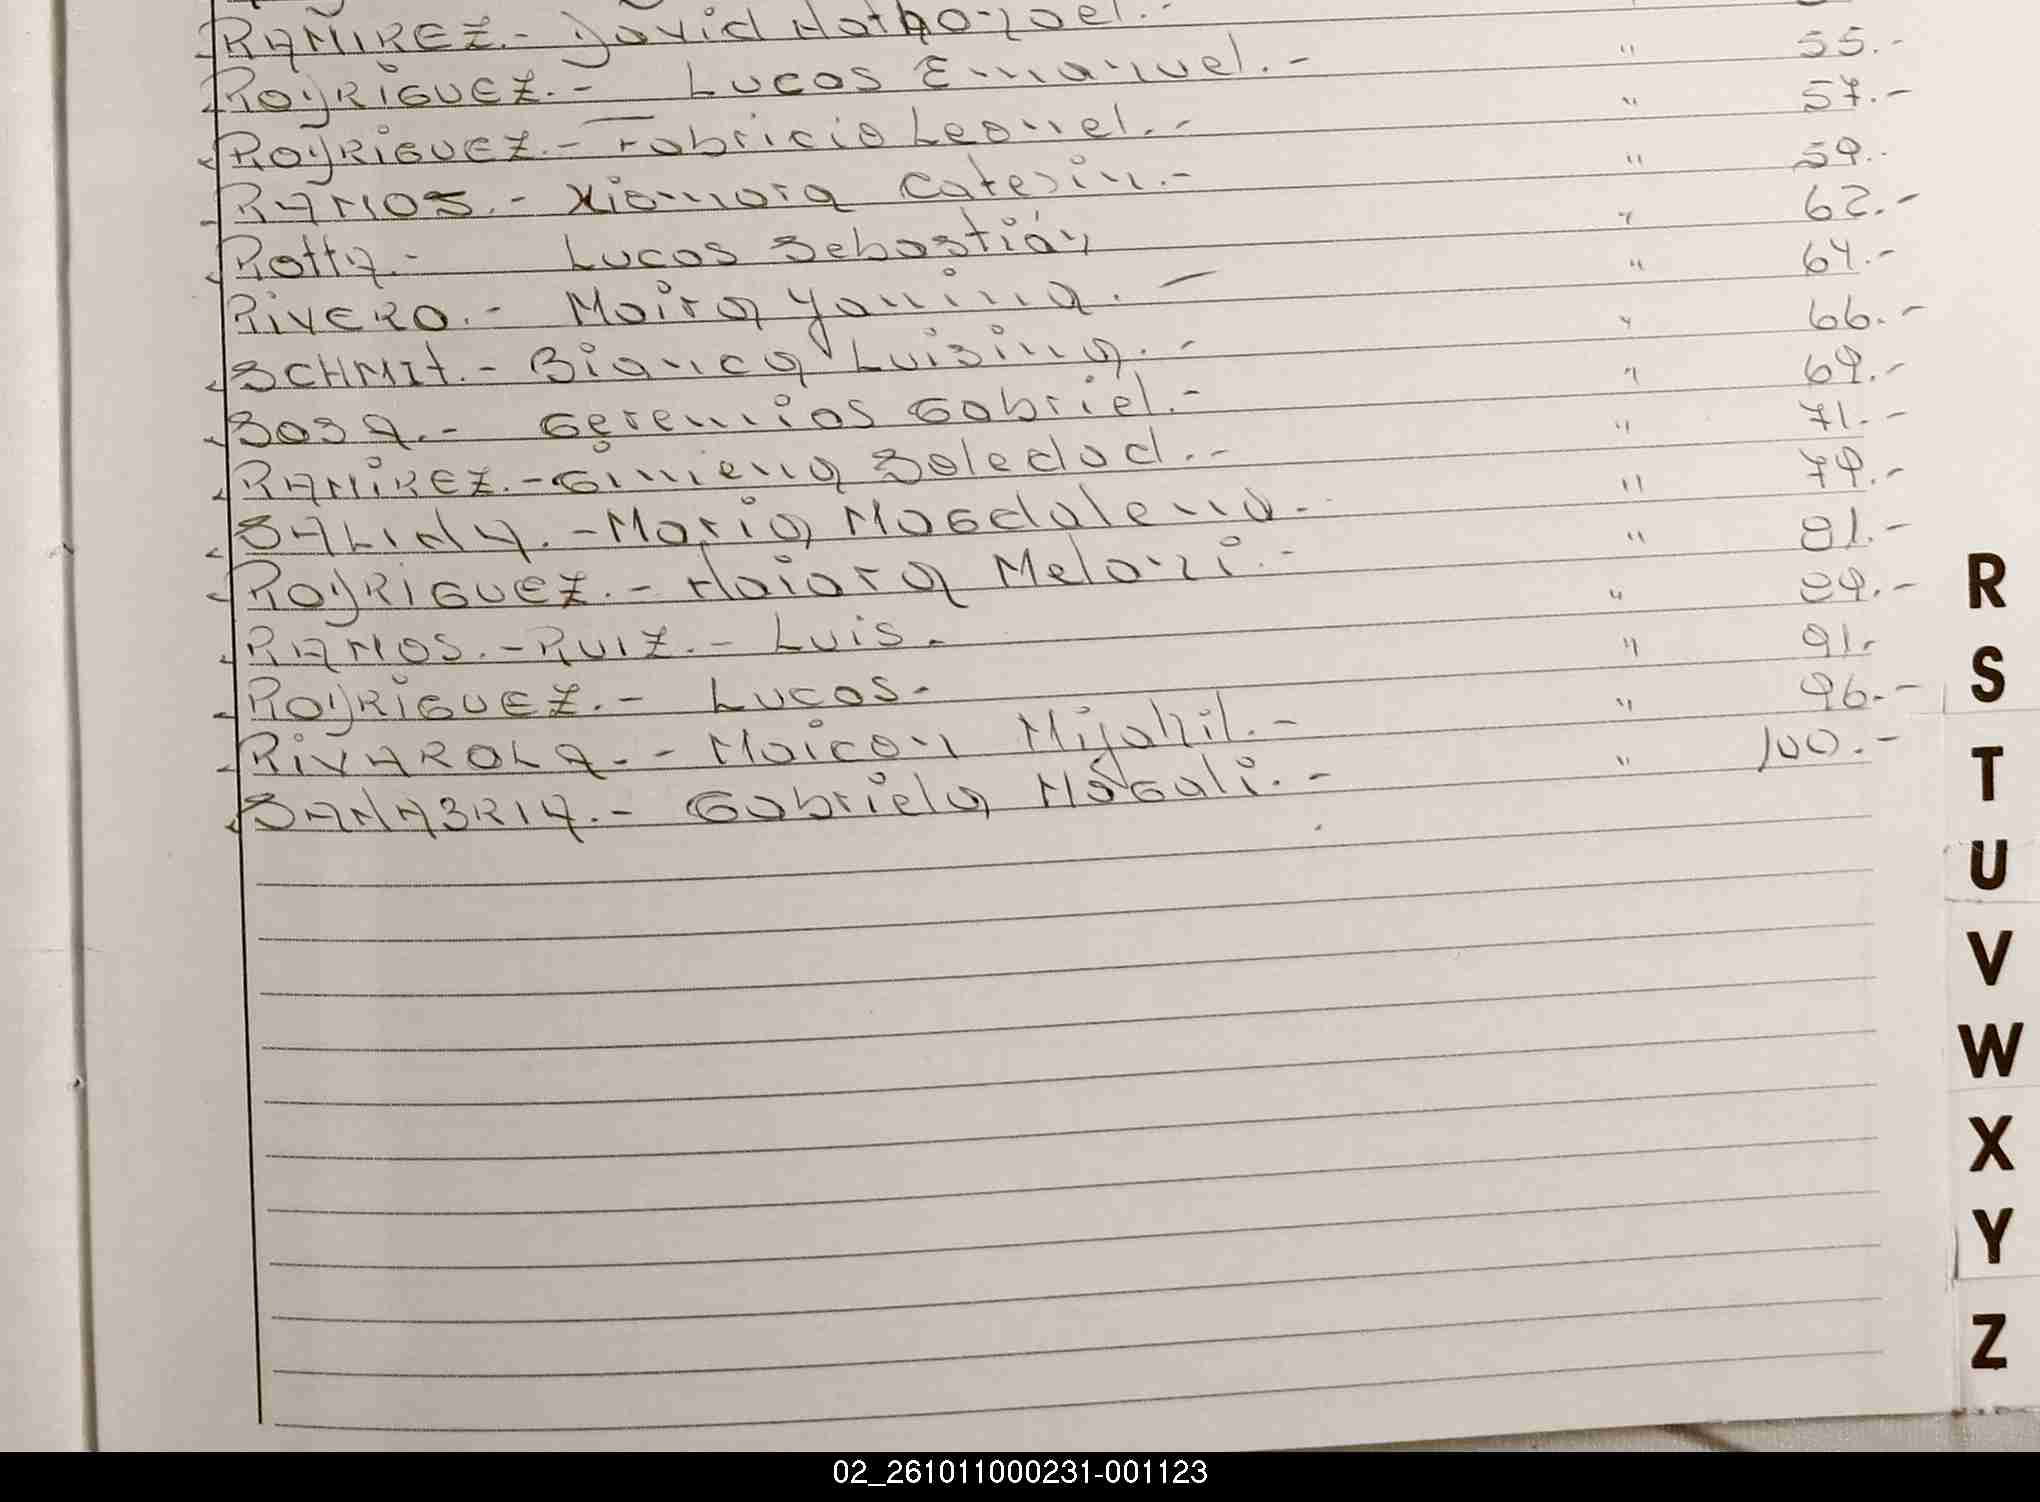 RAMIREZ.- David Nathanael.-
RODRIGUEZ.- Lucas Emanuel.- " 55.-
RODRIGUEZ.- Fabricio Leonel.- " 57.-
RAMOS.- Xiomara Caterin.- " 59.-
Rotta.- Lucas Sebastián " 62.-
RIVERO.- Maira Yanina.- " 64.-
SCHMIt.- Bianca Luisina.- " 66.-
SOSA.- Geremias Gabriel.- " 69.-
RAMIREZ.- Gimena Soledad.- " 71.-
SALINA.- Maria Magdalena.- " 79.-
RODRIGUEZ.- Naiara Melani.- " 81.-
RAMOS.- RUIZ.- Luis.- " 89.-
RODRIGUEZ.- Lucas.- " 91.-
RIVAROLA.- Maicon Mijahil.- " 96.-
SANABRIA.- Gabriela Magali.- " 100.-
R
S
T
U
V
W
X
Y
Z
02_261011000231-001123